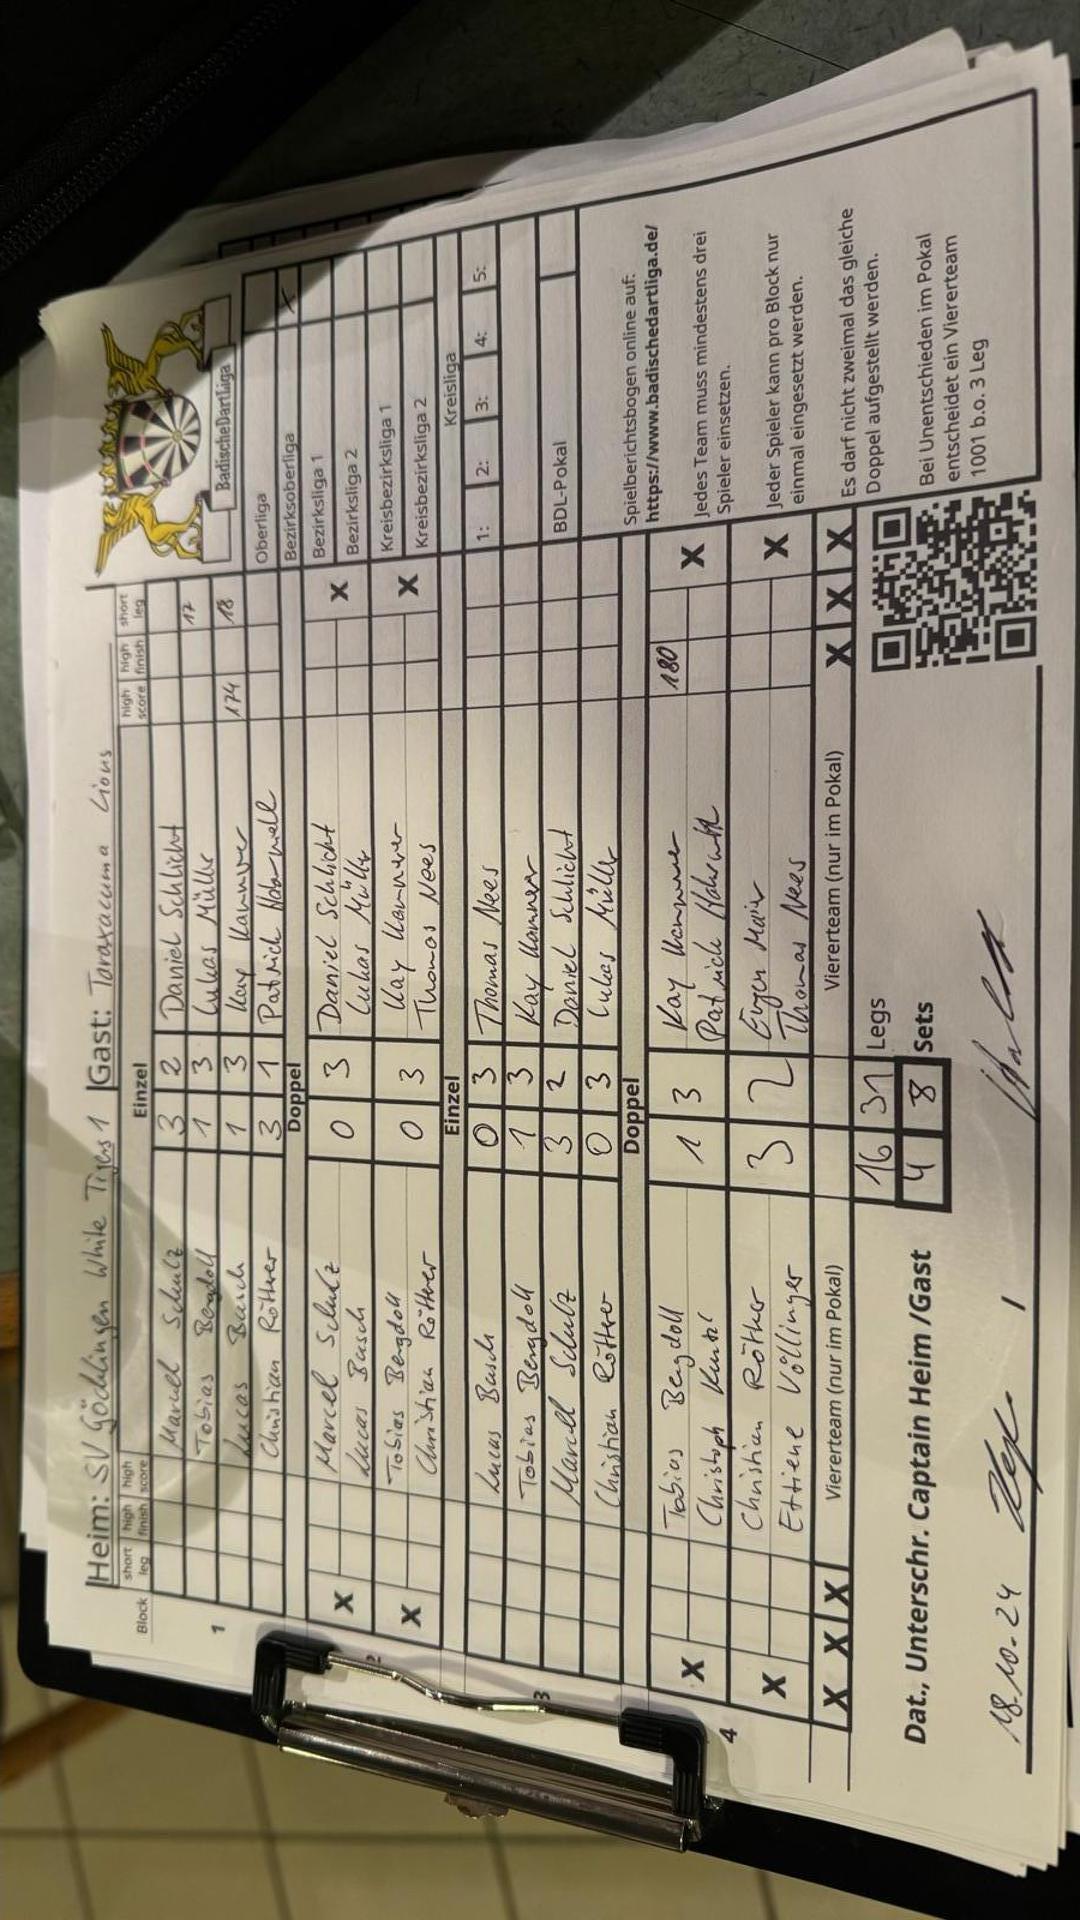 Heim: SV Göcklingen White Tigers 1 Gast: Taraxacuma Lions
BadischeDartLiga
Block short leg high finish high score Einzel high score high finish short leg
1
Marcel Schulz 3 2 Daniel Schlicht
Tobias Bergdoll 1 3 Lukas Müller 17
Lucas Busch 1 3 Kay Hammer 174 18
Christian Röther 3 1 Patrick
Doppel
2
X Marcel Schulz 0 3 Daniel Schlicht X
Lucas Busch Lukas Müller
X Tobias Bergdoll 0 3 Kay Hammer X
Christian Röther Thomas Nees
Einzel
3
Lucas Busch 0 3 Thomas Nees
Tobias Bergdoll 1 3 Kay Hammer
Marcel Schulz 3 2 Daniel Schlicht
Christian Röther 0 3 Lukas Müller
Doppel
4
X Tobias Bergdoll 1 3 Kay Hammer 180 X
Christoph Patrick
X Christian Röther 3 2 Eugen Maier X
Ettiene Völlinger Thomas Nees
X X X Viererteam (nur im Pokal) Viererteam (nur im Pokal) X X X
16 31 Legs
4 8 Sets
Dat., Unterschr. Captain Heim /Gast
18.10.24 /
Oberliga
Bezirksoberliga X
Bezirksliga 1
Bezirksliga 2
Kreisbezirksliga 1
Kreisbezirksliga 2
Kreisliga
1: 2: 3: 4: 5:
BDL-Pokal
Spielberichtsbogen online auf:
https://www.badischedartliga.de/
Jedes Team muss mindestens drei
Spieler einsetzen.
Jeder Spieler kann pro Block nur
einmal eingesetzt werden.
Es darf nicht zweimal das gleiche
Doppel aufgestellt werden.
Bei Unentschieden im Pokal
entscheidet ein Viererteam
1001 b.o. 3 Leg